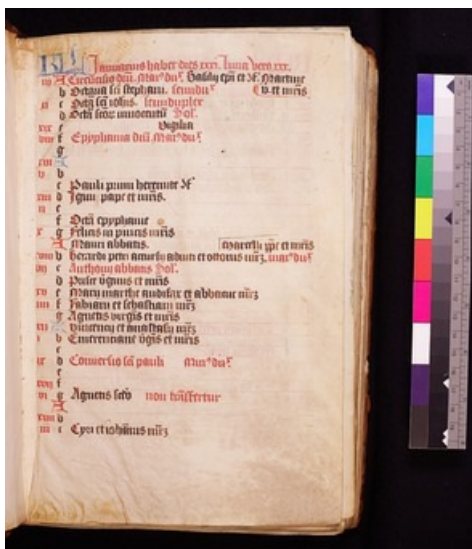 KL Januarius habet dies xxxi. luna vero xxx.
iii A Circūcisio dnī. maꝰ duꝉ
b Octaua scī stephani. semidu
xi c Octᵃ scī iohīs. semiduplex
d Octᵃ scōꝝ innocētū Sol.
xix e Vigilia
viii f Epyphania dnī. maꝰ duꝉ
g
xvi A
v b
c Pauli primi heremite
xiii d Igini pape et mr̄is.
ii e
f Octᵃ epyphanie
x g Felicis in pincis mr̄is
A Mauri abbatis. Marcelli ꝑpe et mr̄is
xviii b berardi petri acursij adiuti et ottonis mr̄ꝝ. maꝰ duꝉ
vii c Anthonij abbatis Sol.
d Prisce v̄ginis et mr̄is
xv e Marij marthe audifax et abbacuc mr̄ꝝ
iiii f Fabiani et sebastiani mr̄ꝝ
g Agnetis virgīs et mr̄is
xii A Vincencij et anastasij mr̄ꝝ
i b Emerenciane v̄gīs et mr̄is
c
ix d Conuersio scī pauli maꝰ duꝉ
e
xvii f
vi g Agnetis scdō non trāsfertur
A
xiiii b
iii c Cyri et iohānis mr̄ꝝ